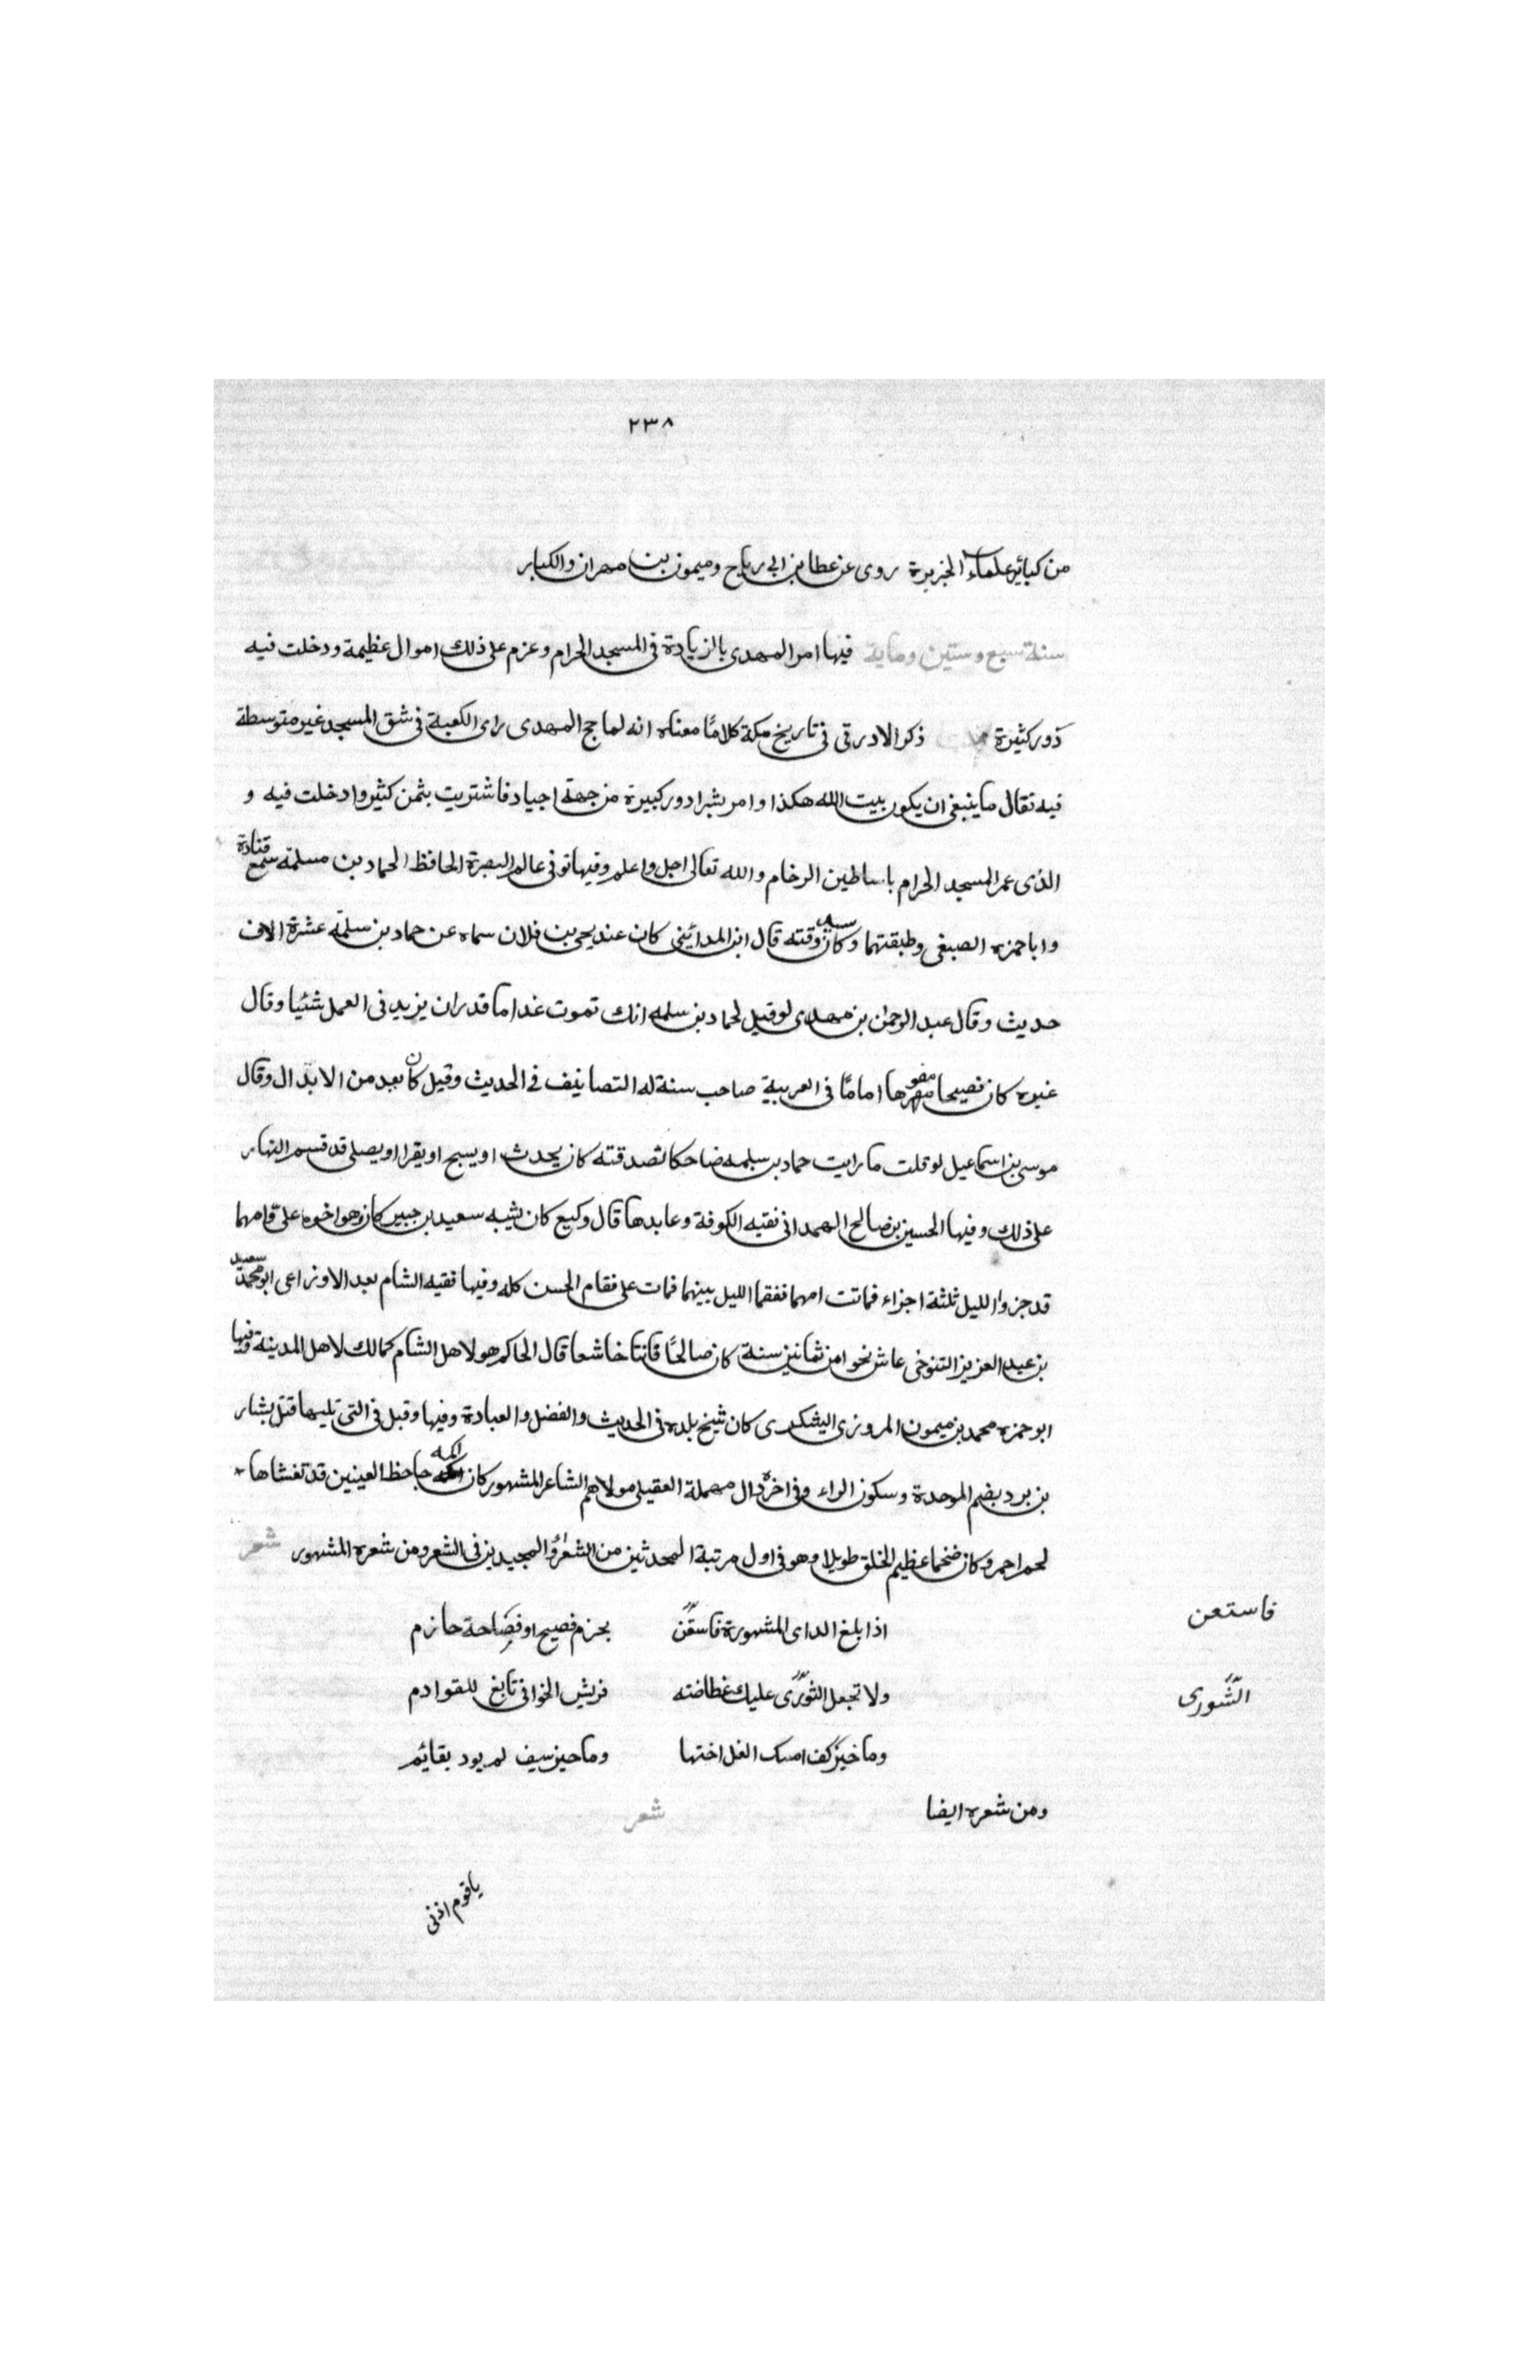 ٢٣٨
من كبائر علماء الجزيرة روى عن عطا بن ابى رباح وميمون بن مهران والكبار
سنة سبع وستين وماية فيها امر المهدى بالزيادة فى المسجد الحرام وعزم على ذلك اموال عظيمة ودخلت فيه
دور كثيرة ذكر الادرقى فى تاريخ مكة كلامًا معناه انه لما حج المهدى راى الكعبة فى شق المسجد غير متوسطة
فيه فقال ما ينبغى ان يكون بيت الله هكذا وامر بشرا دور كبيرة من جهة اجياد فاشتريت بثمن كثير وادخلت فيه و
الذى عمر المسجد الحرام باساطين الرخام والله تعالى اجل واعلم وفيها توفى عالم البصرة الحافظ الحماد بن مسلمة سمع قتادة
وابا حمزه الصبغى وطبقتهما وكان سيد وقته قال ابن المدائينى كان عند يحيى بن فلان سماه عن حماد بن سلمة عشرة الاف
حديث وقال عبد الرحمن بن مهدى لو قيل لحماد بن سلمه انك تموت غدا ما قدر ان يزيد فى العمل شئيا وقال
غيره كان فصيحا مفوها اماما فى العربية صاحب سنة له التصانيف فى الحديث وقيل كان يعد من الابدال وقال
موسى بن اسماعيل لو قلت ما رايت حماد بن سلمه ضاحكا لصدقته كان يحدث او يسبح او يقرا او يصلى قد قسم النهار
على ذلك وفيها الحسين بن صالح الهمدانى فقيه الكوفة وعابدها قال وكيع كان يشبه سعيد بن جبير كان وهو اخوه على وامهما
قد جزوا الليل ثلثة اجزاء فماتت امهما فقسما الليل بينهما فمات على فقام الحسن كله وفيها فقيه الشام بعد الاوزاعى ابو محمد سعيد
بن عبد العزيز التنوخى عاش نحوا من ثمانين سنة كان صالحًا قانتا خاشعا قال الحاكم هو لاهل الشام كمالك لاهل المدينة وفيها
ابو حمزه محمد بن ميمون المروزى اليشكرى كان شيخ بلده فى الحديث والفضل والعبادة وفيها وقيل فى التى تليها قتل بشار
بن برد بضم الموحدة وسكون الراء وفى اخره دال مهملة العقيلى مولاهم الشاعر المشهور كان اكمه جاحظ العينين قد تغشاها
لحم احمر وكان ضخما عظيم الخلق طويلا وهو فى اول مرتبة المحدثين من الشعراء المجيدين فى الشعر ومن شعره المشهور شعر
اذا بلغ الداى المشهورة فاستعن بحزم فصيح او فصاحة حازم
فاستعن
ولا تجعل الثورى عليك غطاضته فريش الخوافى تابع للقوادم
الشّورى
وما خير كف امسك الغل اختها وما حيز سيف لم يود بقايم
ومن شعره ايضا شعر
يا قوم اذنى